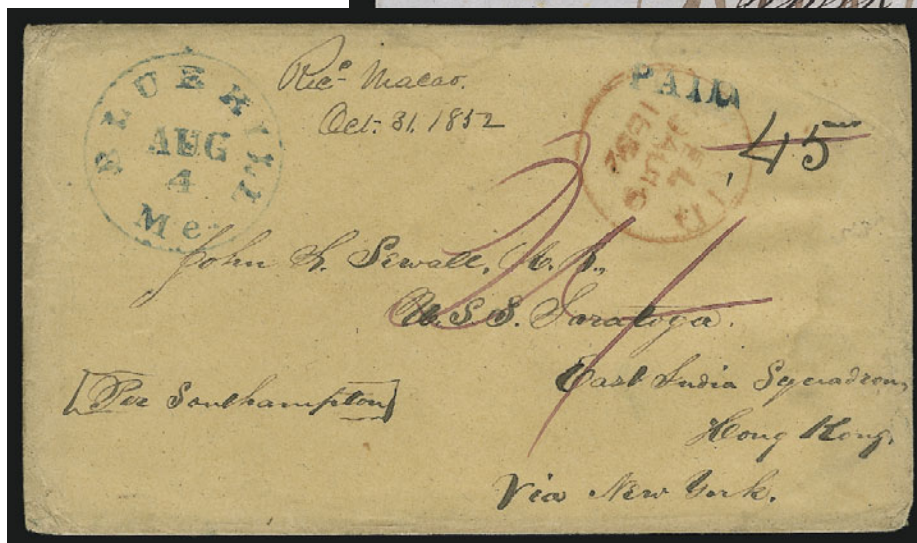 BLUEHILL
AUG
4
Me
Recd Macao.
Oct. 31. 1852
PAID
1852
45
24
John S. Sewall, U. S.,
U. S. S. Saratoga.
East India Squadron,
Hong Kong.
[Per Southampton]
Via New York.